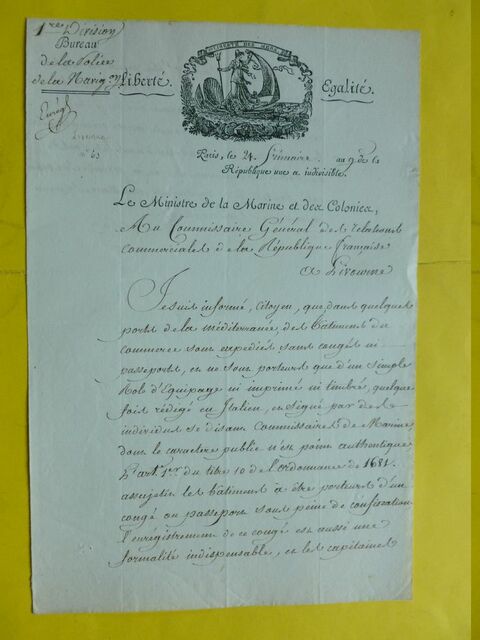 1re Division
Bureau
de la Police
de la Navigon
Liberté.
LIBERTÉ DES MERS
Egalité.
Enregé
63
Paris, le 24 frimaire an 9 de la
République une et indivisible.
Le Ministre de la Marine et des Colonies,
Au Commissaire Général des relations
commerciales de la République française
a Livourne
Je suis informé, Citoyen, que dans quelques
ports de la méditerranée des bâtimens du
commerce sont expédiés sans congés ni
passeports, et ne sont porteurs que d'un simple
Role d'Equipage ni imprimé ni timbré, quelque
fois rédigé en Italien, et signé par des
individus se disans Commissaires de Marine
dont le caractere public n'est point authentique
L'art. 1er du titre 10 de l'ordonnance de 1681.
assujetit les bâtimens à être porteurs d'un
congé ou passeport sous peine de confiscation
l'enregistrement de ce congé est aussi une
formalité indispensable, et les capitaines